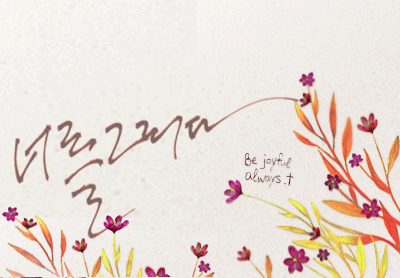 너를그리다
Be joyful
always.†